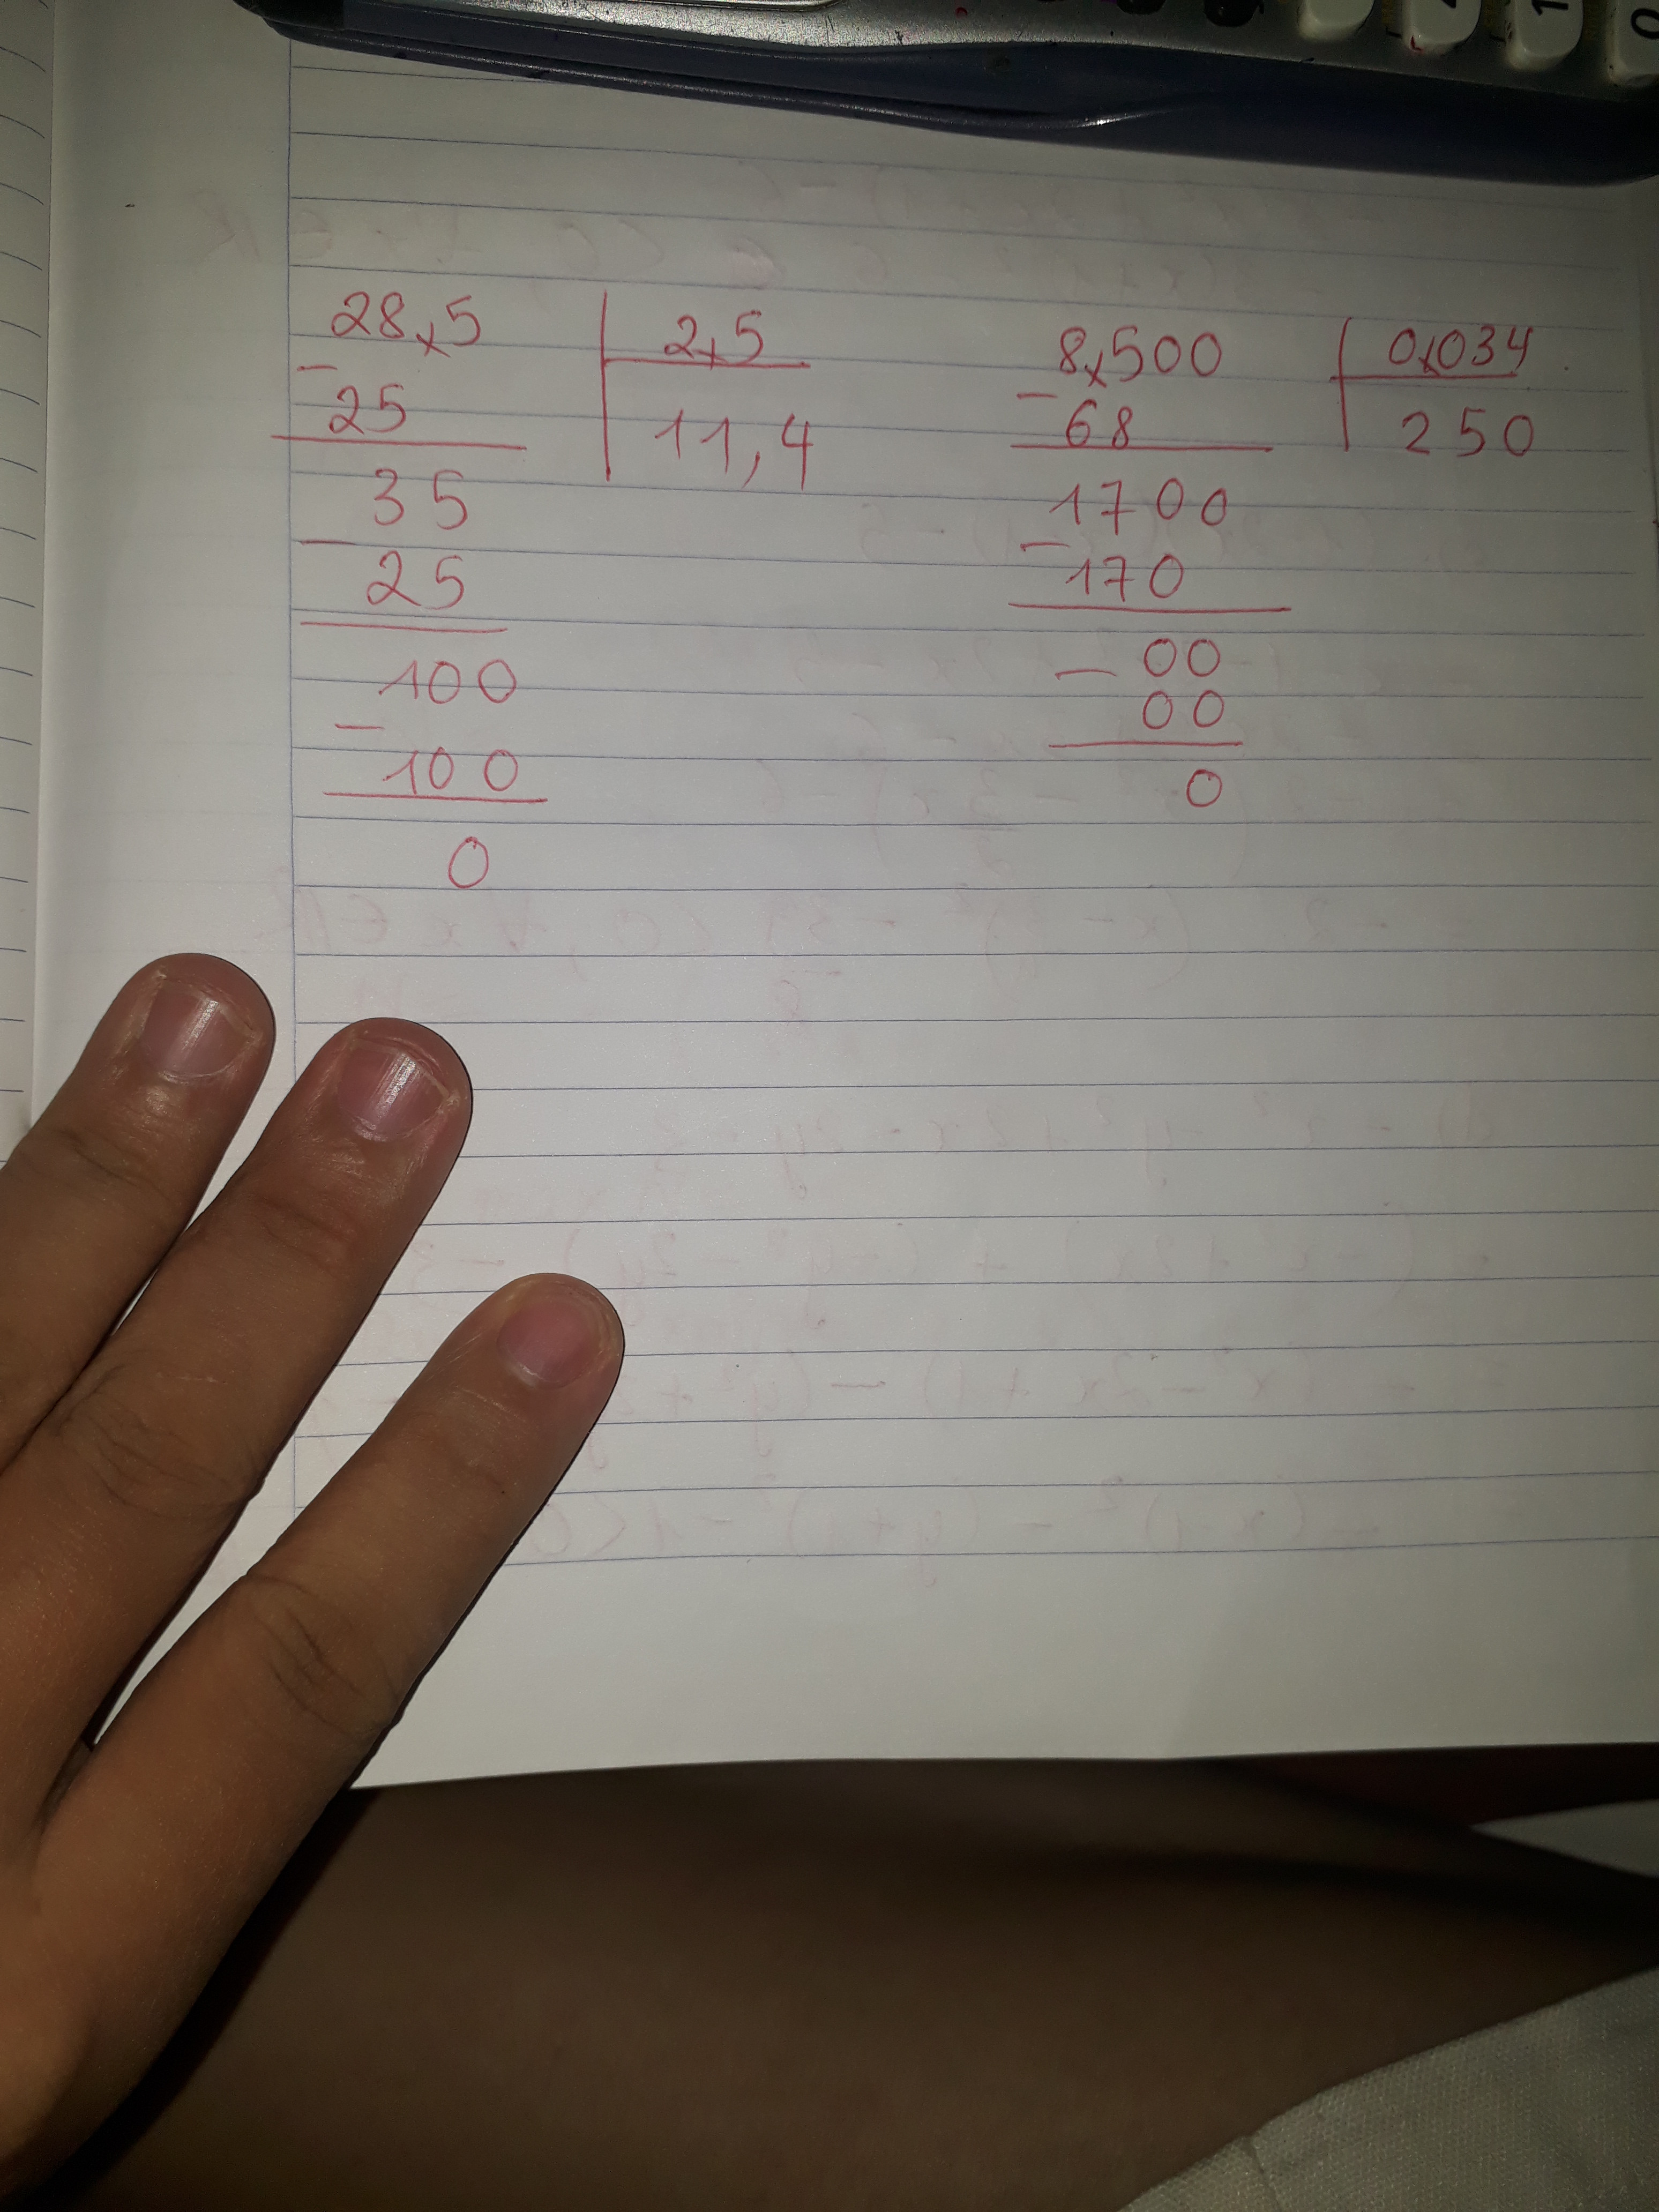 28,5 2,5
- 25 11,4
35
- 25
100
- 100
0
8,500 0,034
- 68 250
1700
- 170
- 00
00
0